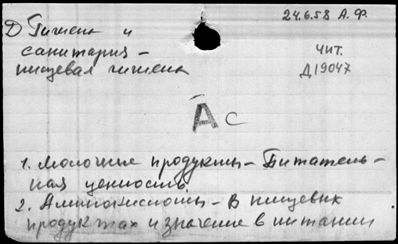 24.6.58 А.Ф.
Д Гигиена и
санитария –
пищевая гигиена
чит.
Д19047
Ас
1. Молочные продукты – Питатель-
ная ценность.
2. Аминокислоты – В пищевых
продуктах и значение в питании